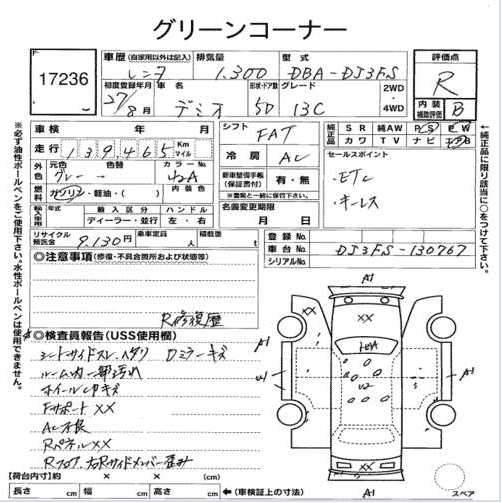 グリーンコーナー
17236
車歴 (自家用以外は記入) 排気量 型式
レンタ 1.300 DBA-DJ3FS
初度登録年月 車名 形状・ドア数 グレード 2WD・4WD
27/8月 デミオ 5D 13C
評価点
R
内装補助評価 B
※必ず油性ボールペンをご使用下さい。水性ボールペンは使用できません。
車検 年 月
走行 139,465 Km マイル
シフト FAT
純正品 SR 純AW PS PW
カワ TV ナビ エアB
←純正品に限り該当に○をつけて下さい。
外色 元色 色替 カラーNo.
グレー → 42A
冷房 AC
セールスポイント
・ETC
・キーレス
燃料 ガソリン・軽油・( ) 内装色
新車整備手帳(保証書付) 有・無
輸入車 年式 輸入区分 ハンドル
ディーラー・並行 左・右
名義変更期限
月 日
リサイクル預託金 9.130円 乗車定員 人 積載量 t
登録No.
車台No. DJ3FS-130767
シリアルNo.
◎注意事項 (修復・不具合箇所および状態等)
R修復歴
◎検査員報告(USS使用欄)
シートサイドスレ、ヘタリ Dミラーキズ
ルーム内一部汚れ
ホイールCAキズ
Fサポート××
AC不良
Rパネル××
Rフロア、右Rサイドメンバー歪み
【荷台内寸】 × ×
長さ cm 幅 cm 高さ cm ←(車検証上の寸法)
A1
××
A1
A1
U1
A1
U2
××
A1
スペア